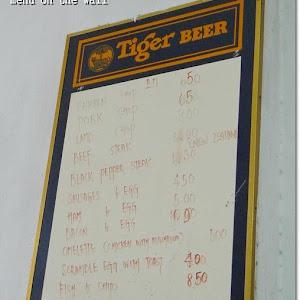 menu on the wall
Tiger BEER
650
CHICKEN CHOP
PORK CHOP 65
LAMB CHOP
BEEF STEAK (NEW ZEALAND
BLACK PEPPER STEAK
SAUSAGES & EGG 450
HAM & EGG 500
BACON & EGG
OMELETTE (CHICKEN WITH MUSHROOM)
SCRAMBLE EGG WITH TOAST 400
FISH & CHIPS 850